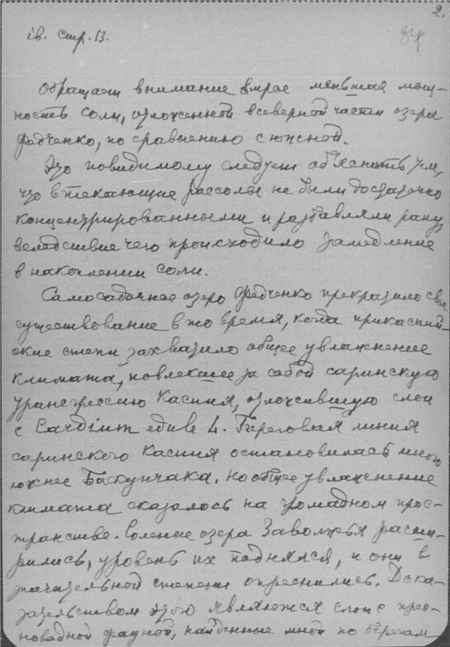 2.
ів. стр. 13.
84
Обращает внимание меньшая мощ-
ность соли, отложенной в северной части озера
Федченко, по сравнению с южной.
Это повидимому следует объяснять тем,
что втекающие рассолы не были достаточно
концентрированными и разбавляли рапу,
вследствие чего происходило замедление
в накоплении соли.
Самосадочное озеро Федченко прекратило свое
существование в то время, когда прикаспий-
ские степи захватило общее увлажнение
климата, повлекшее за собой
трансгрессию Каспия, отложившую слои
с Cardium edule L. Береговая линия
Каспия остановилась много
южнее Баскунчака. Но общее увлажнение
климата сказалось на громадном прос-
транстве. Соленые озера Заволжья расши-
рились, уровень их поднялся, и они в
значительной степени опреснились. Дока-
зательством этого являются слои с прес-
новодной фауной, найденные мной по берегам